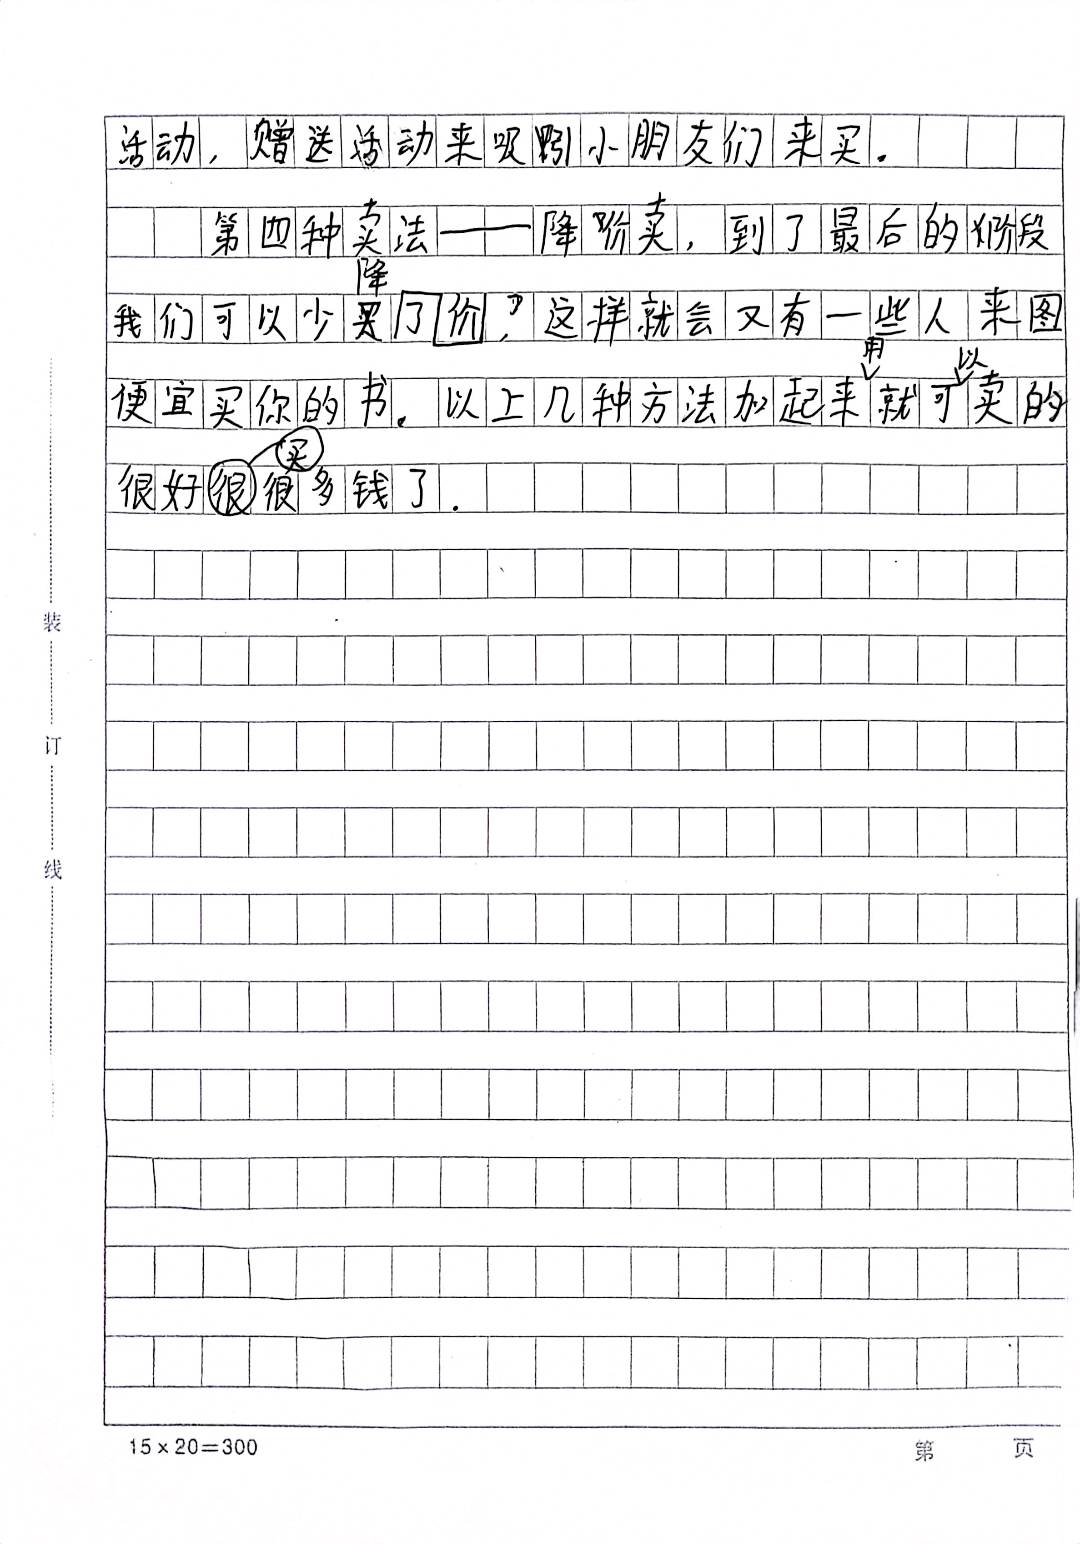 活动，赠送活动来吸引小朋友们来买。
第四种卖法——降阶卖，到了最后的阶段
降
我们可以少买了价，这样就会又有一些人来图
用 以
便宜买你的书。以上几种方法加起来就可卖的
买
很好很很多钱了.
装
订
线
15×20=300
第 页